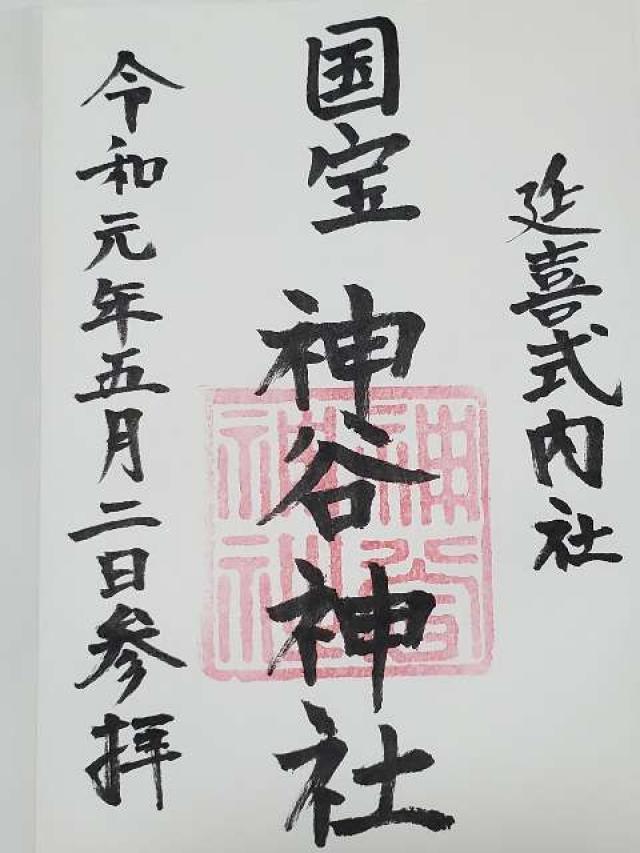 延喜式内社
国宝 神谷神社
神谷
神社
令和元年五月二日参拝